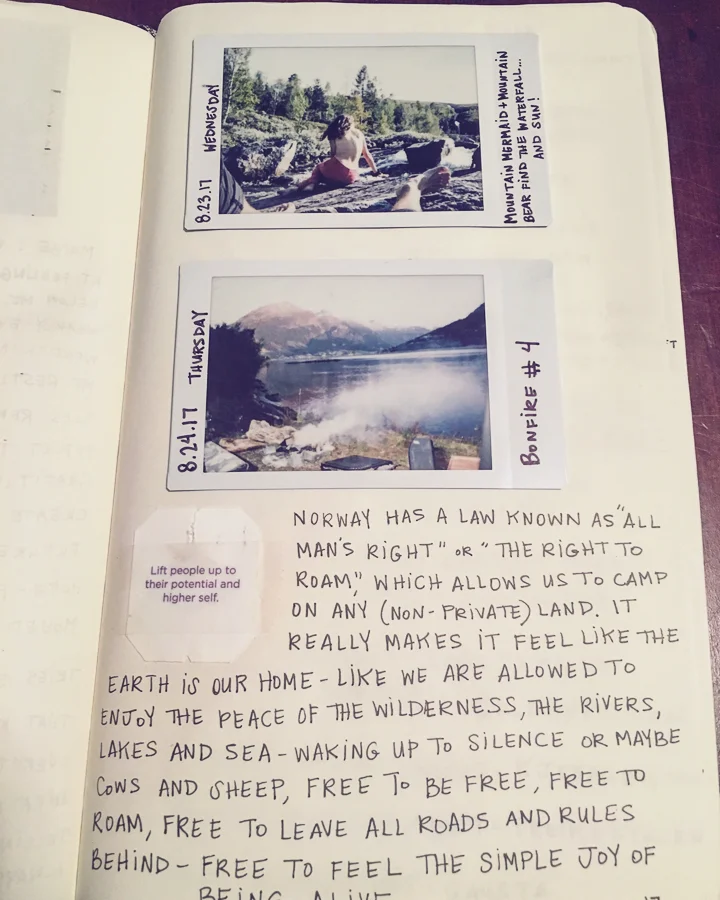 8.23.17 WEDNESDAY
MOUNTAIN MERMAID + MOUNTAIN
BEAR FIND THE WATERFALL...
AND SUN!
8.24.17 THURSDAY
BONFIRE # 4
Lift people up to
their potential and
higher self.
NORWAY HAS A LAW KNOWN AS "ALL
MAN'S RIGHT" OR "THE RIGHT TO
ROAM," WHICH ALLOWS US TO CAMP
ON ANY (NON-PRIVATE) LAND. IT
REALLY MAKES IT FEEL LIKE THE
EARTH IS OUR HOME - LIKE WE ARE ALLOWED TO
ENJOY THE PEACE OF THE WILDERNESS, THE RIVERS,
LAKES AND SEA - WAKING UP TO SILENCE OR MAYBE
COWS AND SHEEP, FREE TO BE FREE, FREE TO
ROAM, FREE TO LEAVE ALL ROADS AND RULES
BEHIND - FREE TO FEEL THE SIMPLE JOY OF
BEING ALIVE